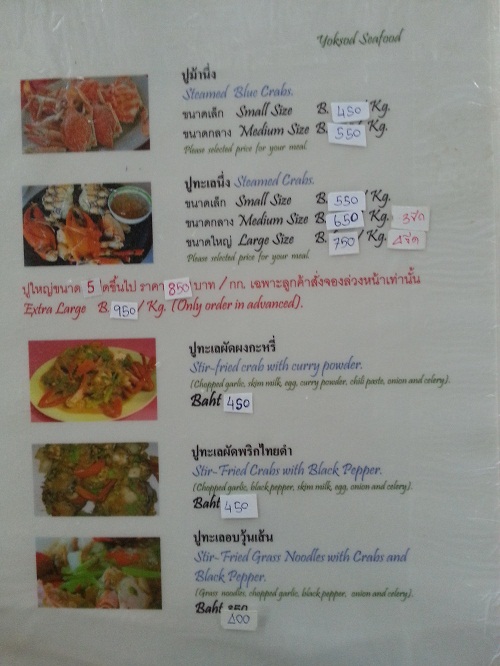 Yoksod Seafood
ปูม้านึ่ง
Steamed Blue Crabs.
ขนาดเล็ก Small Size B. 450 Kg.
ขนาดกลาง Medium Size B. 550 Kg.
Please selected price for your meal.
ปูทะเลนึ่ง Steamed Crabs.
ขนาดเล็ก Small Size B. 550 Kg.
ขนาดกลาง Medium Size B. 650 Kg.
ขนาดใหญ่ Large Size B. 750 Kg.
Please selected price for your meal.
ปูใหญ่ขนาด 5 ขึ้นไป ราคา 850 บาท / กก. เฉพาะลูกค้าสั่งจองล่วงหน้าเท่านั้น
Extra Large B. 950 / Kg. (Only order in advanced).
ปูทะเลผัดผงกะหรี่
Stir-fried crab with curry powder.
(Chopped garlic, skim milk, egg, curry powder, chili paste, onion and celery).
Baht 450
ปูทะเลผัดพริกไทยดำ
Stir-Fried Crabs with Black Pepper.
(Chopped garlic, black pepper, skim milk, egg, onion and celery).
Baht 450
ปูทะเลอบวุ้นเส้น
Stir-Fried Grass Noodles with Crabs and
Black Pepper.
(Grass noodles, chopped garlic, black pepper, onion and celery).
Baht